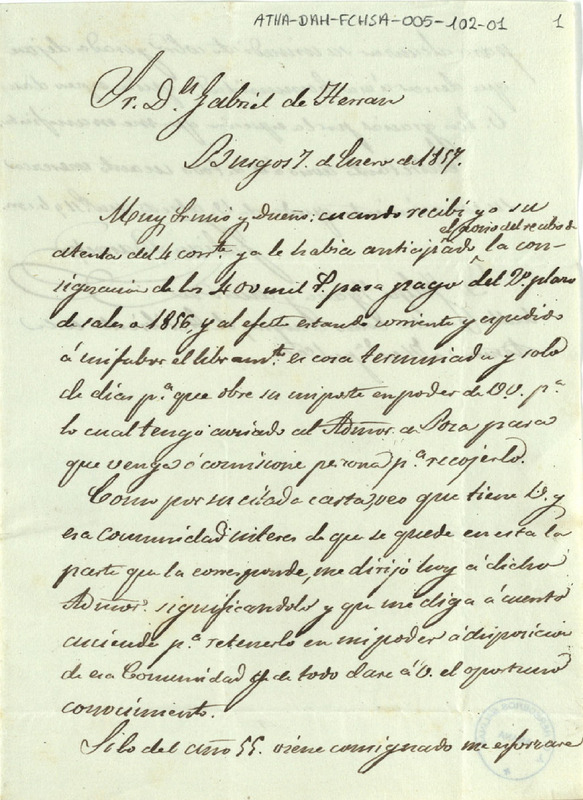 ATHA-DAH-FCHSA-005-102-01
1
Sr. Dn Gabriel de Herran
Burgos 7. de Enero de 1857.
Muy Sr mio y Dueño: cuando recibí yo su
atenta del 4 corrte. ya le habia anticipado el aviso del recibo de la con-
signacion de los 400 mil rs. para pago del 2o. plazo
de sales o 1856, y al efecto estando corriente y espedido
á mi fabor el libramto. es cosa terminada y solo
de dias pa. que obre su importe en poder de V. pa.
lo cual tengo avisado al Admor. de Poza para
que venga ó comisione persona pa. recojerlo.
Como por su citada carta, veo que tiene V. y
esa Comunidad interes de que se quede en esta la
parte que la corresponde, me dirijó hoy á dicho
Admor. significandolo y que me diga á cuanto
aciende pa. retenerlo en mi poder á disposicion
de esa Comunidad y de todo dare á V. el oportuno
conocimiento.
Si lo del año 55. viene consignado me esforzare